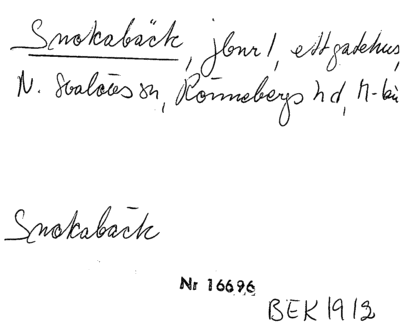 Snokabäck, jbnr 1, ett gatehus,
N. Svalövs sn, Rönnebergs hd, M-län
Snokabäck
Nr 16696
BEK 1912